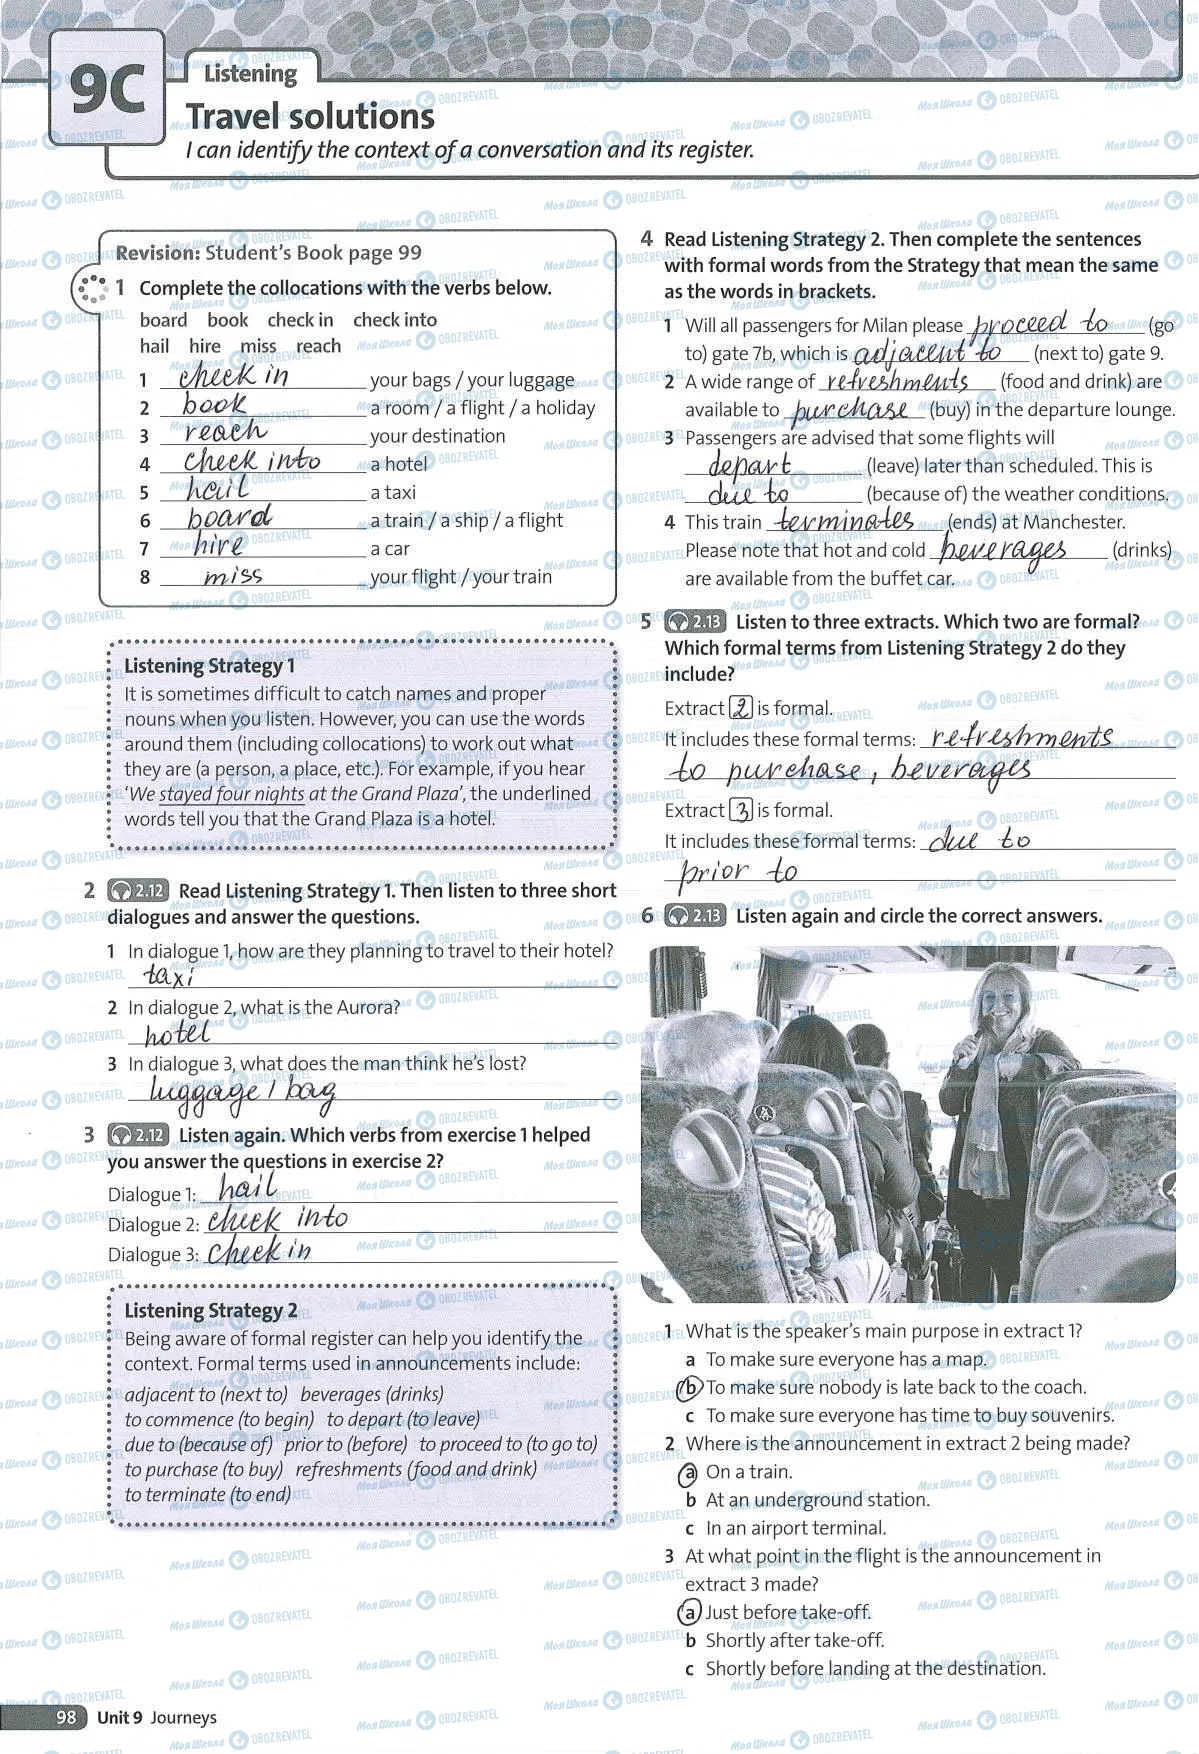 9C
Listening
Travel solutions
I can identify the context of a conversation and its register.
Revision: Student's Book page 99
1 Complete the collocations with the verbs below.
board book check in check into
hail hire miss reach
1 check in your bags / your luggage
2 book a room / a flight / a holiday
3 reach your destination
4 check into a hotel
5 hail a taxi
6 board a train / a ship / a flight
7 hire a car
8 miss your flight / your train
Listening Strategy 1
It is sometimes difficult to catch names and proper
nouns when you listen. However, you can use the words
around them (including collocations) to work out what
they are (a person, a place, etc.). For example, if you hear
'We stayed four nights at the Grand Plaza', the underlined
words tell you that the Grand Plaza is a hotel.
2 2.12 Read Listening Strategy 1. Then listen to three short
dialogues and answer the questions.
1 In dialogue 1, how are they planning to travel to their hotel?
taxi
2 In dialogue 2, what is the Aurora?
hotel
3 In dialogue 3, what does the man think he's lost?
luggage / bag
3 2.12 Listen again. Which verbs from exercise 1 helped
you answer the questions in exercise 2?
Dialogue 1: hail
Dialogue 2: check into
Dialogue 3: check in
Listening Strategy 2
Being aware of formal register can help you identify the
context. Formal terms used in announcements include:
adjacent to (next to) beverages (drinks)
to commence (to begin) to depart (to leave)
due to (because of) prior to (before) to proceed to (to go to)
to purchase (to buy) refreshments (food and drink)
to terminate (to end)
4 Read Listening Strategy 2. Then complete the sentences
with formal words from the Strategy that mean the same
as the words in brackets.
1 Will all passengers for Milan please proceed to (go
to) gate 7b, which is adjacent to (next to) gate 9.
2 A wide range of refreshments (food and drink) are
available to purchase (buy) in the departure lounge.
3 Passengers are advised that some flights will
depart (leave) later than scheduled. This is
due to (because of) the weather conditions.
4 This train terminates (ends) at Manchester.
Please note that hot and cold beverages (drinks)
are available from the buffet car.
5 2.13 Listen to three extracts. Which two are formal?
Which formal terms from Listening Strategy 2 do they
include?
Extract 2 is formal.
It includes these formal terms: refreshments
to purchase, beverages
Extract 3 is formal.
It includes these formal terms: due to
prior to
6 2.13 Listen again and circle the correct answers.
1 What is the speaker's main purpose in extract 1?
a To make sure everyone has a map.
b To make sure nobody is late back to the coach.
c To make sure everyone has time to buy souvenirs.
2 Where is the announcement in extract 2 being made?
a On a train.
b At an underground station.
c In an airport terminal.
3 At what point in the flight is the announcement in
extract 3 made?
a Just before take-off.
b Shortly after take-off.
c Shortly before landing at the destination.
98 Unit 9 Journeys
Моя Школа OBOZREVATEL